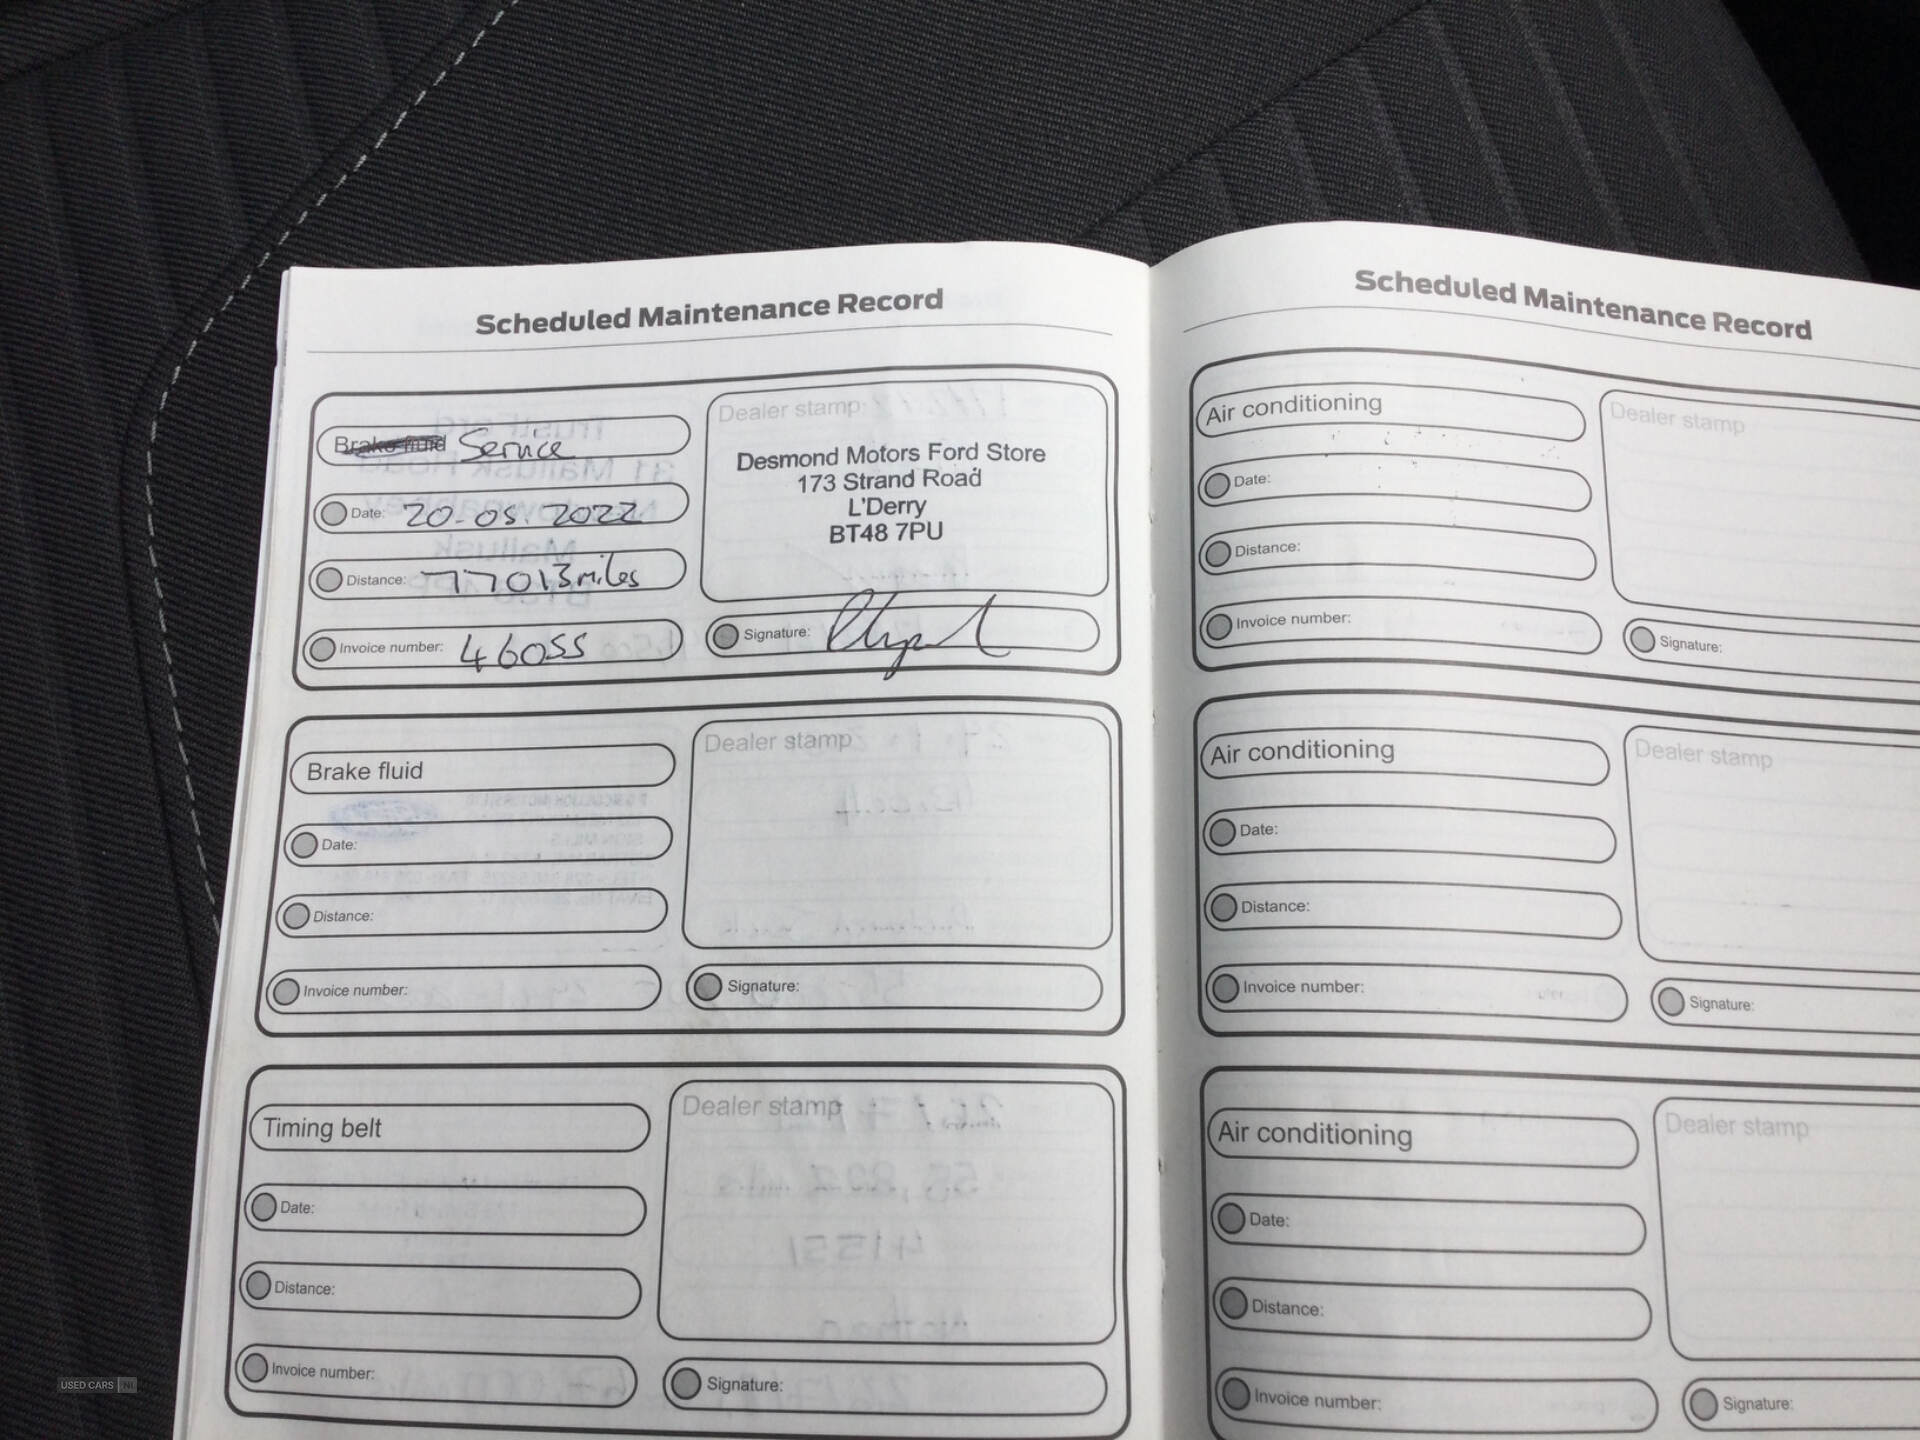 Scheduled Maintenance Record
Brake fluid Service
Date: 20-05.2022
Distance: 77013miles
Invoice number: 46055
Dealer stamp:
Desmond Motors Ford Store
173 Strand Road
L'Derry
BT48 7PU
Signature:
Brake fluid
Date:
Distance:
Invoice number:
Dealer stamp
Signature:
Timing belt
Date:
Distance:
Invoice number:
Dealer stamp
Signature:
Scheduled Maintenance Record
Air conditioning
Date:
Distance:
Invoice number:
Dealer stamp
Signature:
Air conditioning
Date:
Distance:
Invoice number:
Dealer stamp
Signature:
Air conditioning
Date:
Distance:
Invoice number:
Dealer stamp
Signature:
USED CARS NI